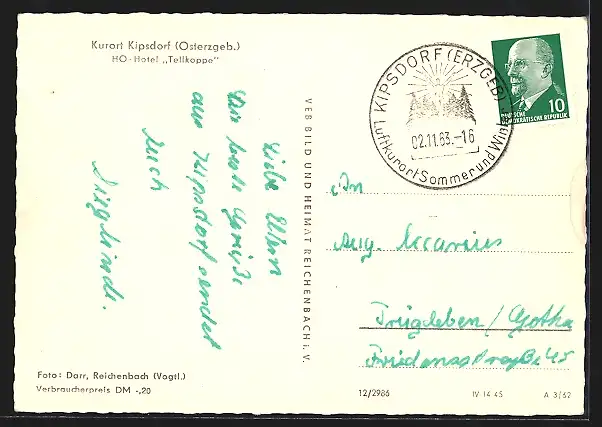 Kurort Kipsdorf (Osterzgeb.)
HO-Hotel „Tellkoppe"
Liebe Eltern
Die beste Grüße
aus Kipsdorf sendet
Euch
Sieglinde.
Foto: Darr, Reichenbach (Vogtl.)
Verbraucherpreis DM -,20
VEB BILD UND HEIMAT REICHENBACH i. V.
KIPSDORF (ERZGEB)
02.11.63.-16
Luftkurort Sommer und Wint
10
DEUTSCHE
DEMOKRATISCHE REPUBLIK
An
Aug. Macarius
Trügleben/Gotha
Friedensstraße 45
12/2986
IV 14 45
A 3/62